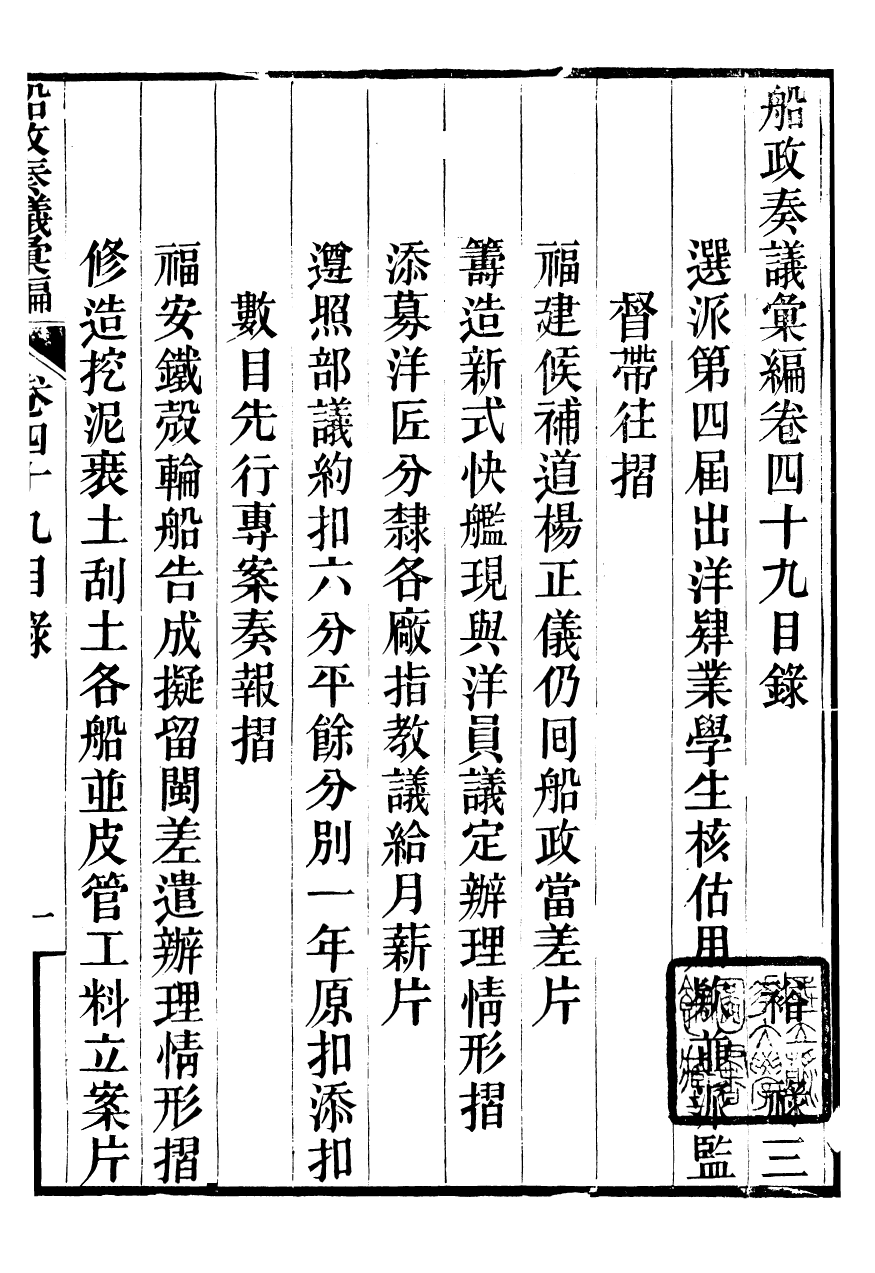 船政奏議彙編卷四十九目錄　裕祿三
選派第四屆出洋肄業學生核估用款並派監
督帶往摺
福建候補道楊正儀仍回船政當差片
籌造新式快艦現與洋員議定辦理情形摺
添募洋匠分隸各廠指教議給月薪片
遵照部議約扣六分平餘分別一年原扣添扣
數目先行專案奏報摺
福安鐵殼輪船告成擬留閩差遣辦理情形摺
修造挖泥裝土刮土各船並皮管工料立案片
船政奏議彙編
卷四十九目錄
一